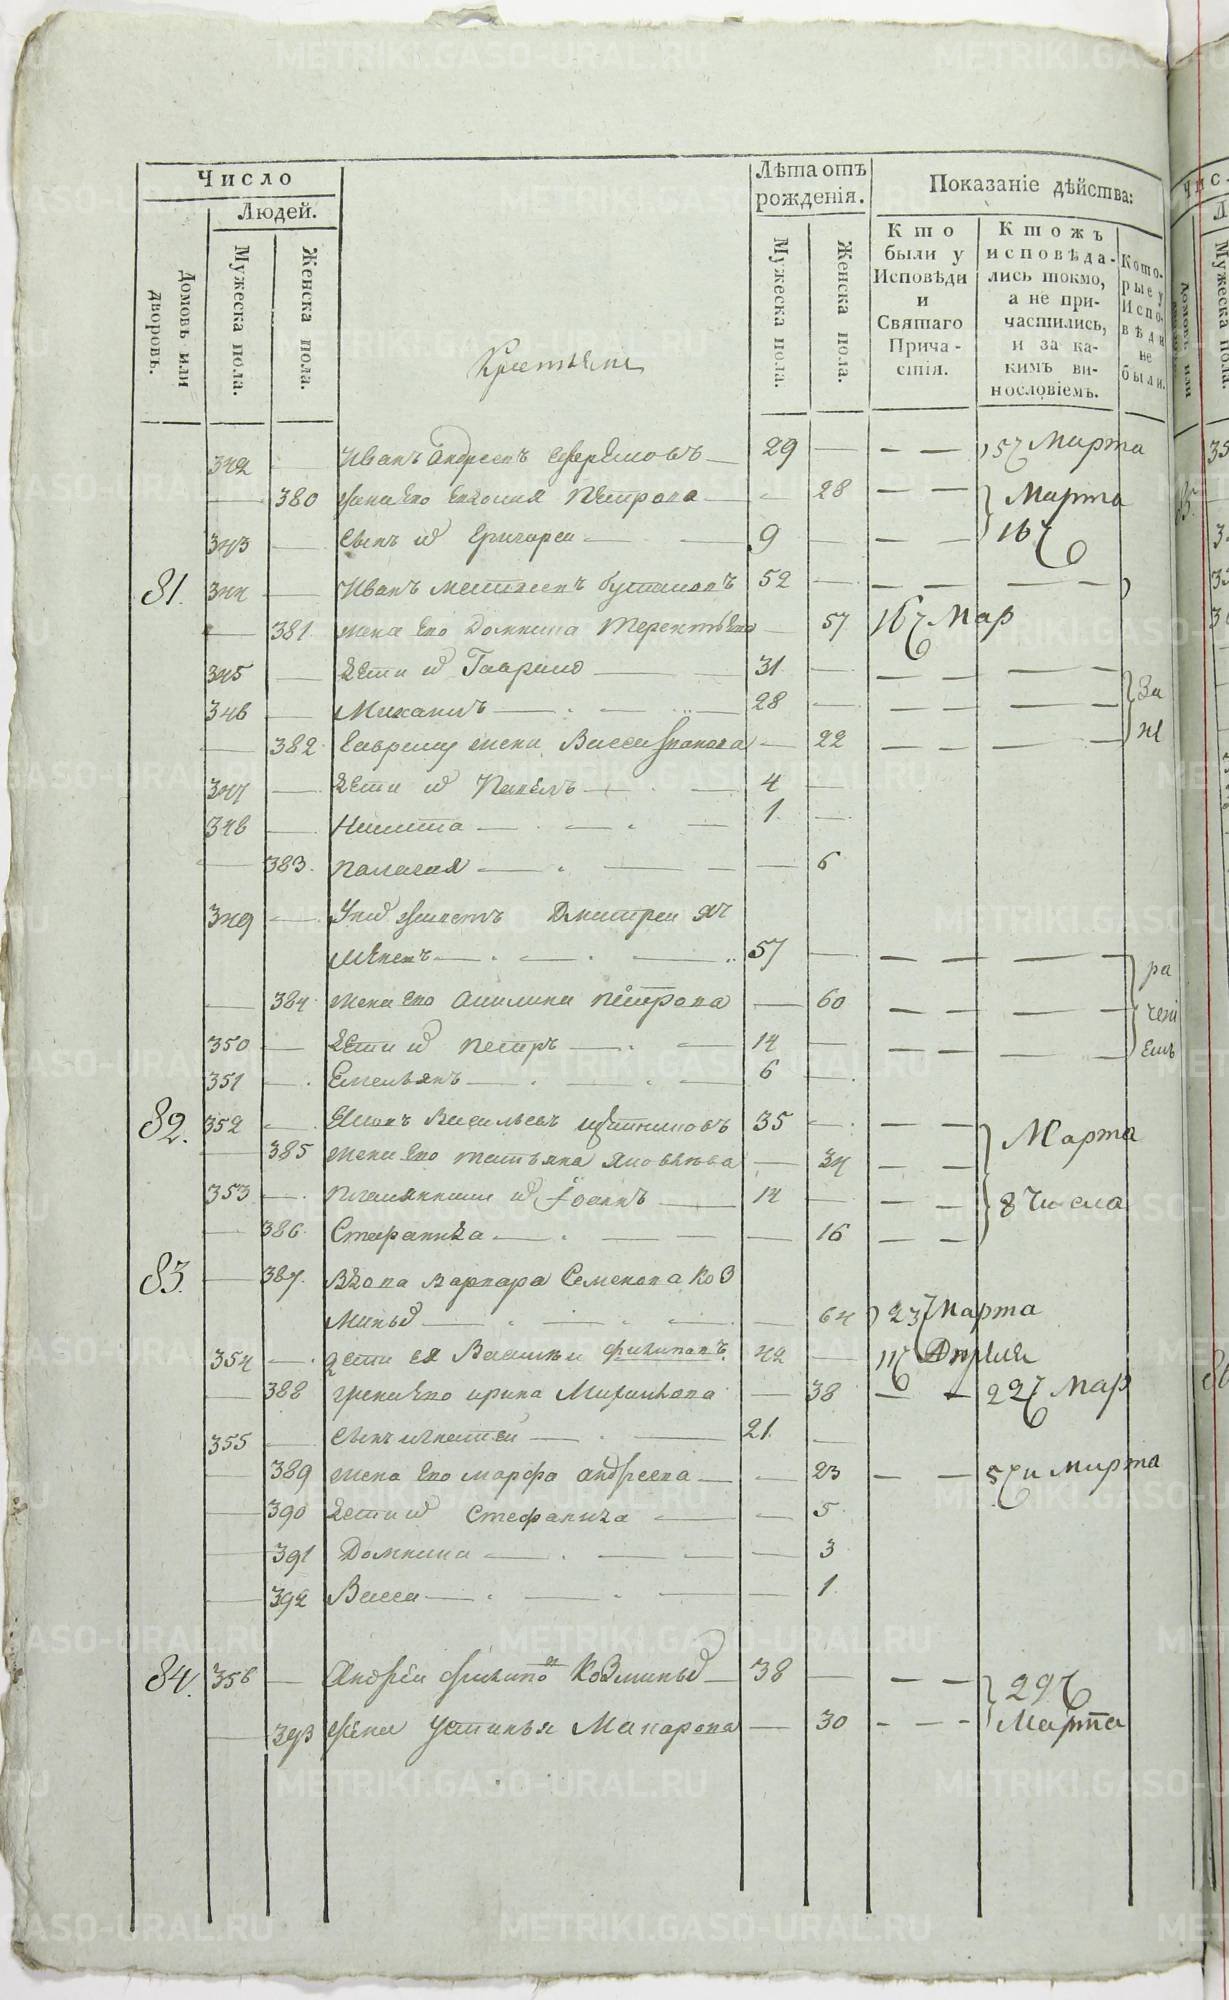 Число
Людей.
Домовъ или дворовъ.
Мужеска пола.
Женска пола.
Лѣта отъ рожденія.
Мужеска пола.
Женска пола.
Показаніе дѣйства:
Кто были у Исповѣди и Святаго Причастія.
Ктожъ исповѣдались токмо, а не причастились, и за какимъ винословіемъ.
Которые у Исповѣди не были.
Крестьяне
342 Иванъ Андреевъ 29 15 Марта
380 жена его Евдокия Петрова 28 Марта
343 сынъ их Григореи 9 16
81. 344 Иванъ Матвеевъ 52
381 жена его Домнина Терентьева 57 16 Мар
345 дети их Гаврило 31 За
346 Михаилъ 28 не
382 Гаврилу жена Васса Иванова 22
347 дети их Павелъ 4
348 Никита 1
383. Палагея 6
349 У них живетъ Дмитреи Яч
меневъ 57 ра
384 жена его Акилина Петрова 60 чені
350 дети их Петръ 14 емъ
351 Емельянъ 6
82. 352 Василевъ 35 Марта
385 жена его Татьяна Яковлева 34
353 племянники их Іоаннъ 14 8 Числа
386 Стефанида 16
83. 387. Вдова Варвара Семенова Коз
миных 64 23 Марта
354 дети ея Василеи Филиповъ 42 11 Апреля
388 жена его Ирина Михаилова 38 22 Мар
355 сынъ Игнатеи 21
389 жена его Марфа Андреева 23 5 Марта
390 дети их Стефанида 5
391 Домнина 3
392 Васса 1
84. 356 Андреи Филипов Козминых 38 29
393 жена Устинья Макарова 30 Марта
METRIKI.GASO-URAL.RU